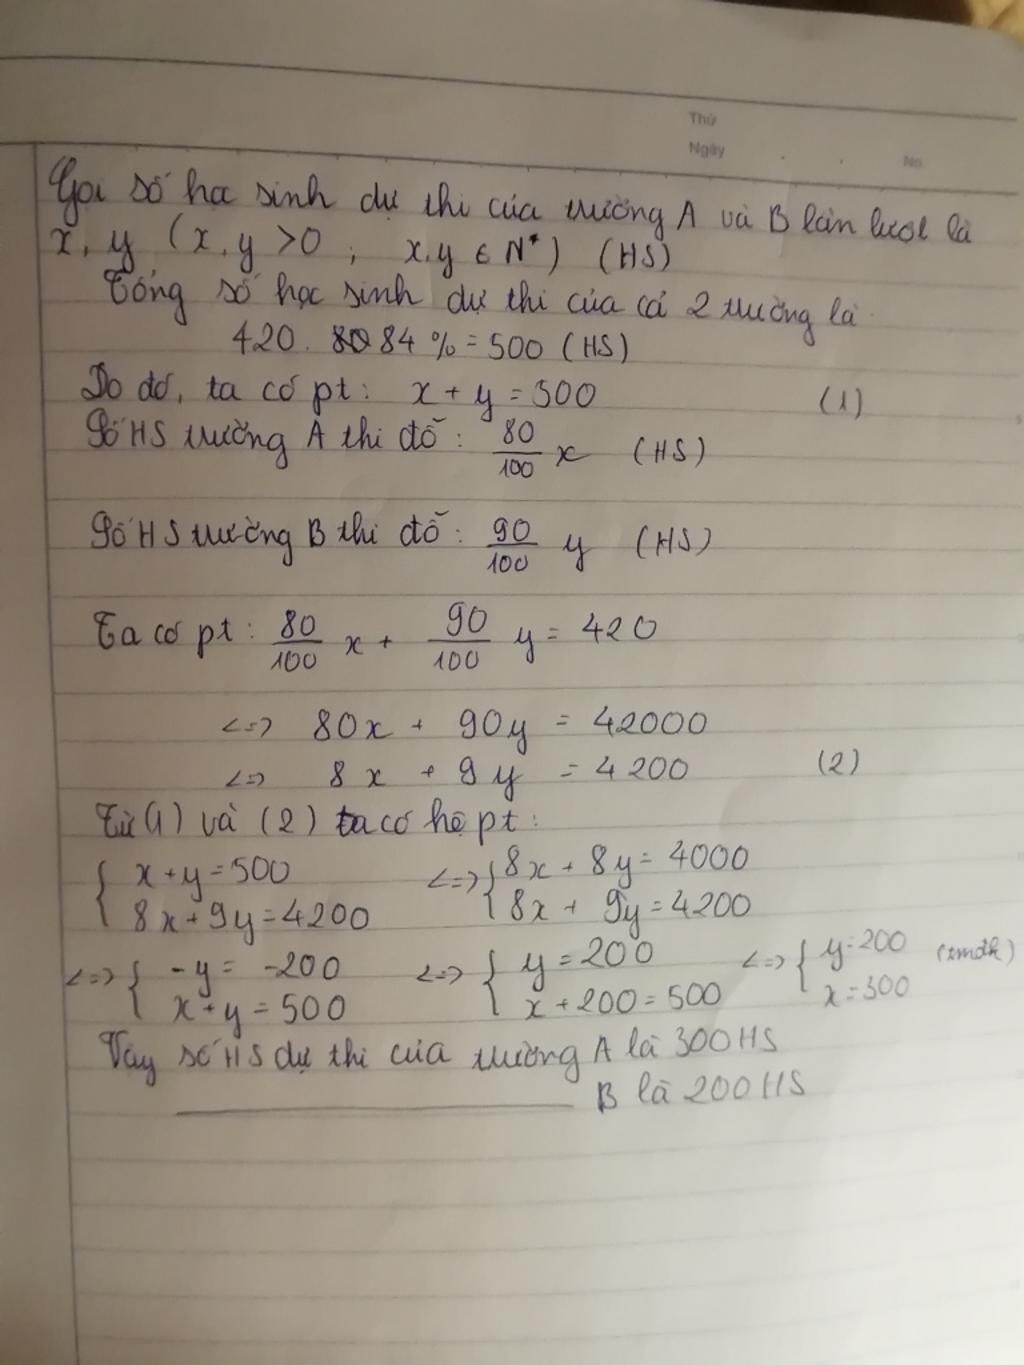 Thứ
Ngày . . No
Gọi số học sinh dự thi của trường A và B lần lượt là
x, y (x, y > 0 ; x, y ∈ N*) (HS)
Tổng số học sinh dự thi của cả 2 trường là
420 . 84 % = 500 (HS)
Do đó, ta có pt: x + y = 500 (1)
Số HS trường A thi đỗ : 80/100 x (HS)
Số HS trường B thi đỗ : 90/100 y (HS)
Ta có pt : 80/100 x + 90/100 y = 420
<=> 80x + 90y = 42000
<=> 8x + 9y = 4200 (2)
Từ (1) và (2) ta có hệ pt :
{ x + y = 500 <=> { 8x + 8y = 4000
{ 8x + 9y = 4200 { 8x + 9y = 4200
<=> { -y = -200 <=> { y = 200 <=> { y = 200 (tmđk)
{ x + y = 500 { x + 200 = 500 { x = 300
Vậy số HS dự thi của trường A là 300HS
B là 200HS